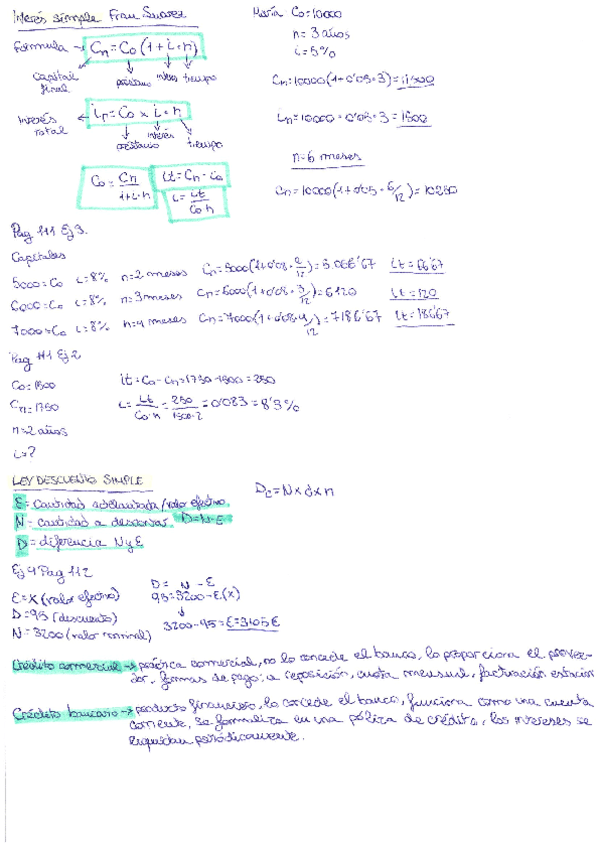 Interés simple Fran Suarez
Formula → Cn = Co (1 + i · n)
capital final
préstamo
interés
tiempo
Interés total
In = Co x i · n
préstamo
interés
tiempo
Co = Cn / 1+i·n
It = Cn - Co
i = It / Co·n
María Co = 10000
n = 3 años
i = 5%
Cn = 10000(1+0'05·3) = 11500
In = 10000 · 0'05 · 3 = 1500
n = 6 meses
Cn = 10000(1+0'05 · 6/12) = 10250
Pag 111 Ej 3.
Capitales
5000 = Co i = 8% n = 2 meses Cn = 5000(1+0'08 · 2/12) = 5.066'67 It = 66'67
6000 = Co i = 8% n = 3 meses Cn = 6000(1+0'08 · 3/12) = 6120 It = 120
7000 = Co i = 8% n = 4 meses Cn = 7000(1+0'08 · 4/12) = 7186'67 It = 186'67
Pag 111 Ej 2
Co = 1500 It = Co - Cn = 1750 - 1500 = 250
Cn = 1750 i = It / Co·n = 250 / 1500·2 = 0'083 = 8'3%
n = 2 años
i = ?
LEY DESCUENTO SIMPLE
E = Cantidad adelantada/valor efectivo. Dc = N x d x n
N = cantidad a descontar D = N - E
D = diferencia N y E
Ej 4 Pag 112
E = X (valor efectivo) D = N - E
D = 95 (descuento) 95 = 3200 - E(x)
N = 3200 (valor nominal) 3200 - 95 = E = 3105 €
Crédito comercial → práctica comercial, no lo concede el banco, lo proporciona el provee-
dor, formas de pago: a reposición, cuota mensual, facturación estacion
Crédito bancario → producto financiero, lo concede el banco, funciona como una cuenta
corriente, se formaliza en una póliza de crédito, los intereses se
liquidan periódicamente.